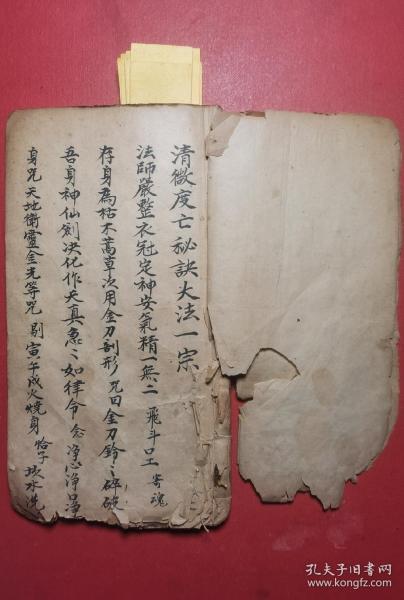 清微度亡秘訣大法一宗
法師嚴整衣冠定神安氣精一無二 飛斗口工 寄魂
存身為枯木蒿草次用金刀剖形 咒曰金刀鈴〻碎破
吾身神仙劍決化作天真急〻如律令 念淨心淨口淨
身咒 天地衛靈金光等咒 剔寅午戌火燒身 恰子 坎水洗
孔夫子旧书网
www.kongfz.com